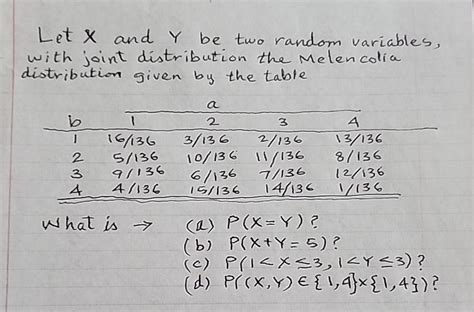 Let X and Y be two random variables,
with joint distribution the Melencolia
distribution given by the table
a
b 1 2 3 4
1 16/136 3/136 2/136 13/136
2 5/136 10/136 11/136 8/136
3 9/136 6/136 7/136 12/136
4 4/136 15/136 14/136 1/136
What is → (a) P(X=Y)?
(b) P(X+Y=5)?
(c) P(1<X≤3, 1<Y≤3)?
(d) P((X,Y)∈{1,4}×{1,4})?